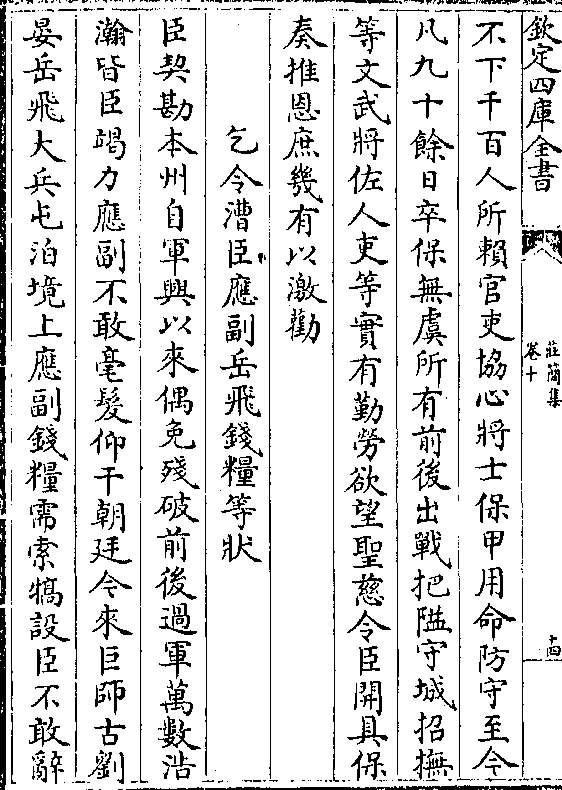 欽定四庫全書
莊簡集
卷十
十四
不下千百人所賴官吏協心將士保甲用命防守至今
凡九十餘日卒保無虞所有前後出戰把隘守城招撫
等文武將佐人吏等實有勤勞欲望聖慈令臣開具保
奏推恩庶幾有以激勸
乞令漕臣應副岳飛錢糧等狀
臣契勘本州自軍興以來偶免殘破前後過軍萬數浩
瀚皆臣竭力應副不敢毫髮仰干朝廷今來巨師古劉
晏岳飛大兵屯泊境上應副錢糧需索犒設臣不敢辭